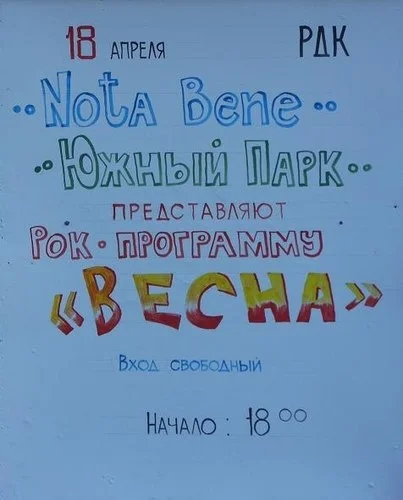 18 АПРЕЛЯ РДК
··Nota Bene··
··Южный Парк··
ПРЕДСТАВЛЯЮТ
Рок-программу
«ВЕСНА»
Вход свободный
Начало: 18 00